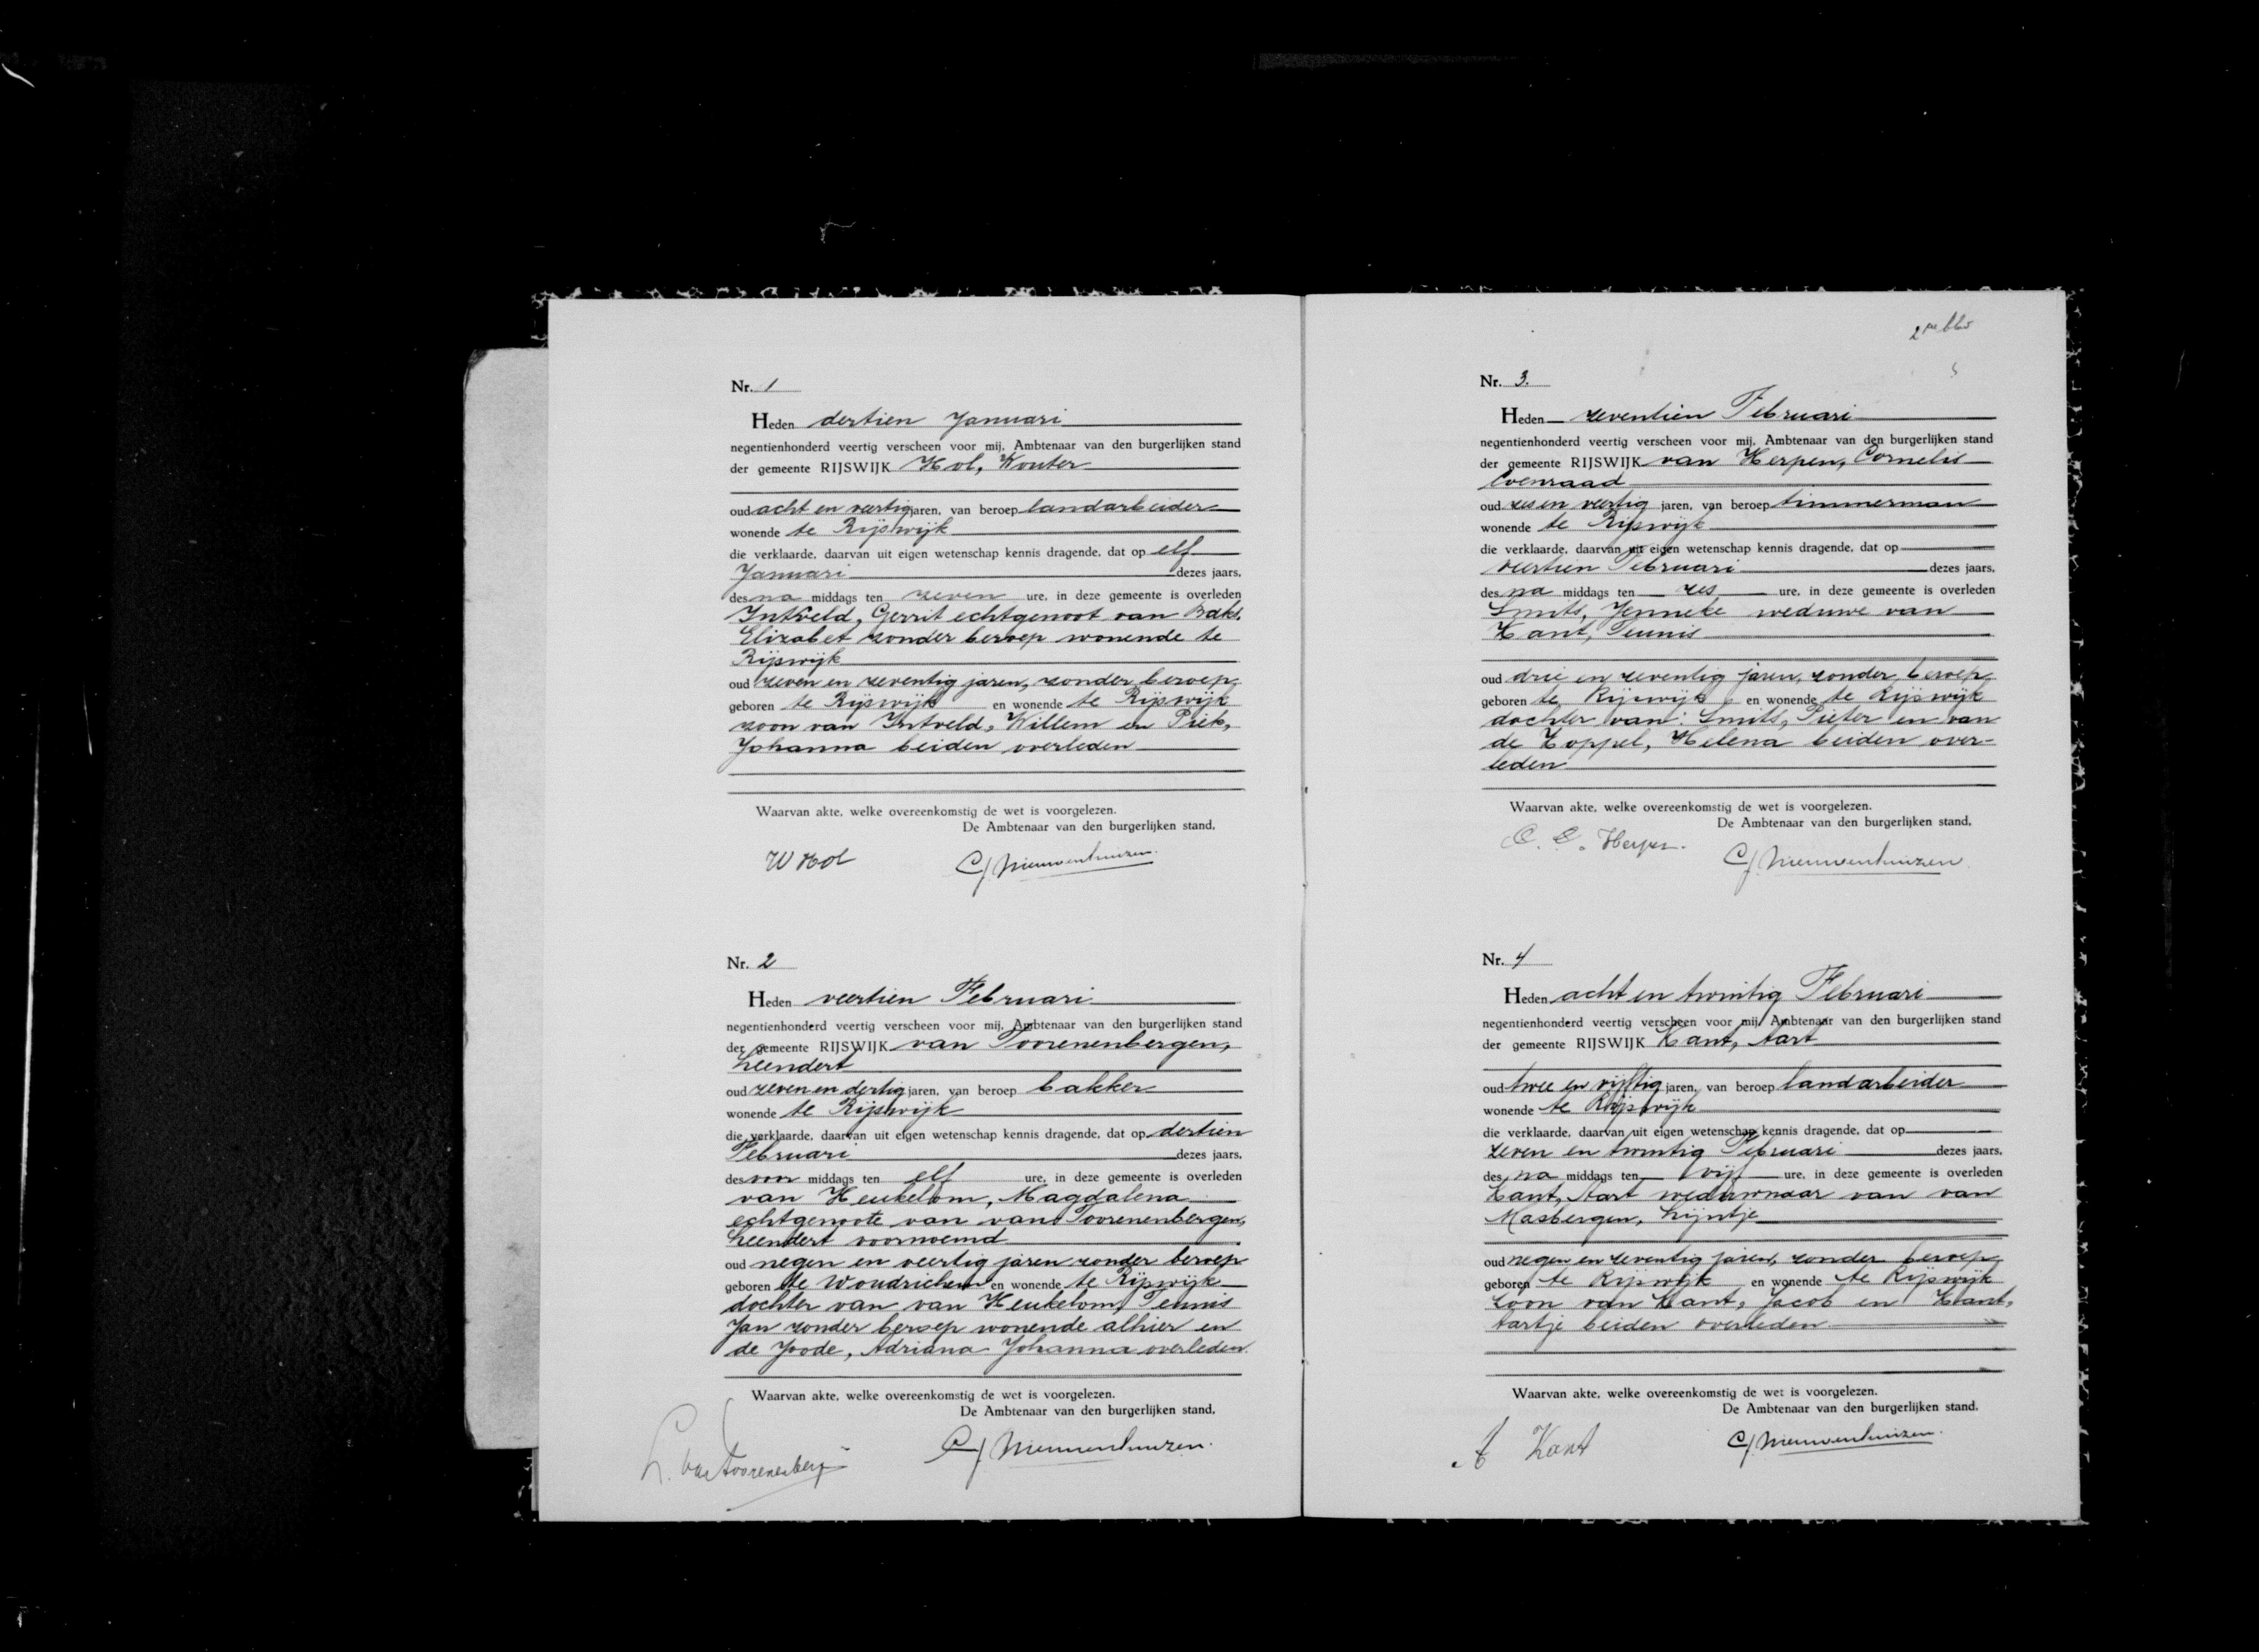 Nr. 1
Heden dertien Januari
negentienhonderd veertig verscheen voor mij, Ambtenaar van den burgerlijken stand
der gemeente RIJSWIJK Hol, Wouter
oud acht en veertig jaren, van beroep landarbeider
wonende te Rijswijk
die verklaarde, daarvan uit eigen wetenschap kennis dragende, dat op elf
Januari dezes jaars,
des na middags ten zeven ure, in deze gemeente is overleden
Intveld, Gerrit echtgenoot van Bakt,
Elizabet zonder beroep wonende te
Rijswijk
oud zeven en zeventig jaren, zonder beroep,
geboren te Rijswijk en wonende te Rijswijk
zoon van Intveld, Willem en Piek,
Johanna beiden overleden
Waarvan akte, welke overeenkomstig de wet is voorgelezen.
De Ambtenaar van den burgerlijken stand,
W Hol CJ. Nieuwenhuizen.
Nr. 2
Heden veertien Februari
negentienhonderd veertig verscheen voor mij, Ambtenaar van den burgerlijken stand
der gemeente RIJSWIJK van Toorenenbergen,
Leendert
oud zeven en dertig jaren, van beroep bakker
wonende te Rijswijk
die verklaarde, daarvan uit eigen wetenschap kennis dragende, dat op dertien
Februari dezes jaars,
des voor middags ten elf ure, in deze gemeente is overleden
van Heukelom, Magdalena
echtgenoote van van Toorenenbergen,
Leendert voornoemd
oud negen en veertig jaren zonder beroep
geboren te Woudrichem en wonende te Rijswijk
dochter van van Heukelom, Teunis
Jan zonder beroep wonende alhier en
de Joode, Adriana Johanna overleden.
Waarvan akte, welke overeenkomstig de wet is voorgelezen.
De Ambtenaar van den burgerlijken stand,
L. van Toorenenberg CJ. Nieuwenhuizen.
Nr. 3.
Heden zeventien Februari
negentienhonderd veertig verscheen voor mij, Ambtenaar van den burgerlijken stand
der gemeente RIJSWIJK van Herpen, Cornelis
Coenraad
oud zes en veertig jaren, van beroep timmerman
wonende te Rijswijk
die verklaarde, daarvan uit eigen wetenschap kennis dragende, dat op
veertien Februari dezes jaars,
des na middags ten zes ure, in deze gemeente is overleden
Smits, Jenneke weduwe van
Kant, Teunis
oud drie en zeventig jaren, zonder beroep,
geboren te Rijswijk en wonende te Rijswijk
dochter van: Smits, Pieter en van
de Koppel, Helena beiden over-
leden
Waarvan akte, welke overeenkomstig de wet is voorgelezen.
De Ambtenaar van den burgerlijken stand,
C. C. Herpen. CJ. Nieuwenhuizen.
Nr. 4
Heden acht en twintig Februari
negentienhonderd veertig verscheen voor mij, Ambtenaar van den burgerlijken stand
der gemeente RIJSWIJK Kant, Aart
oud twee en vijftig jaren, van beroep landarbeider
wonende te Rijswijk
die verklaarde, daarvan uit eigen wetenschap kennis dragende, dat op
zeven en twintig Februari dezes jaars,
des na middags ten vijf ure, in deze gemeente is overleden
Kant, Aart weduwnaar van van
Masbergen, Lijntje
oud negen en zeventig jaren, zonder beroep,
geboren te Rijswijk en wonende te Rijswijk
zoon van Kant, Jacob en Kant,
Aartje beiden overleden
Waarvan akte, welke overeenkomstig de wet is voorgelezen.
De Ambtenaar van den burgerlijken stand,
A Kant CJ. Nieuwenhuizen.